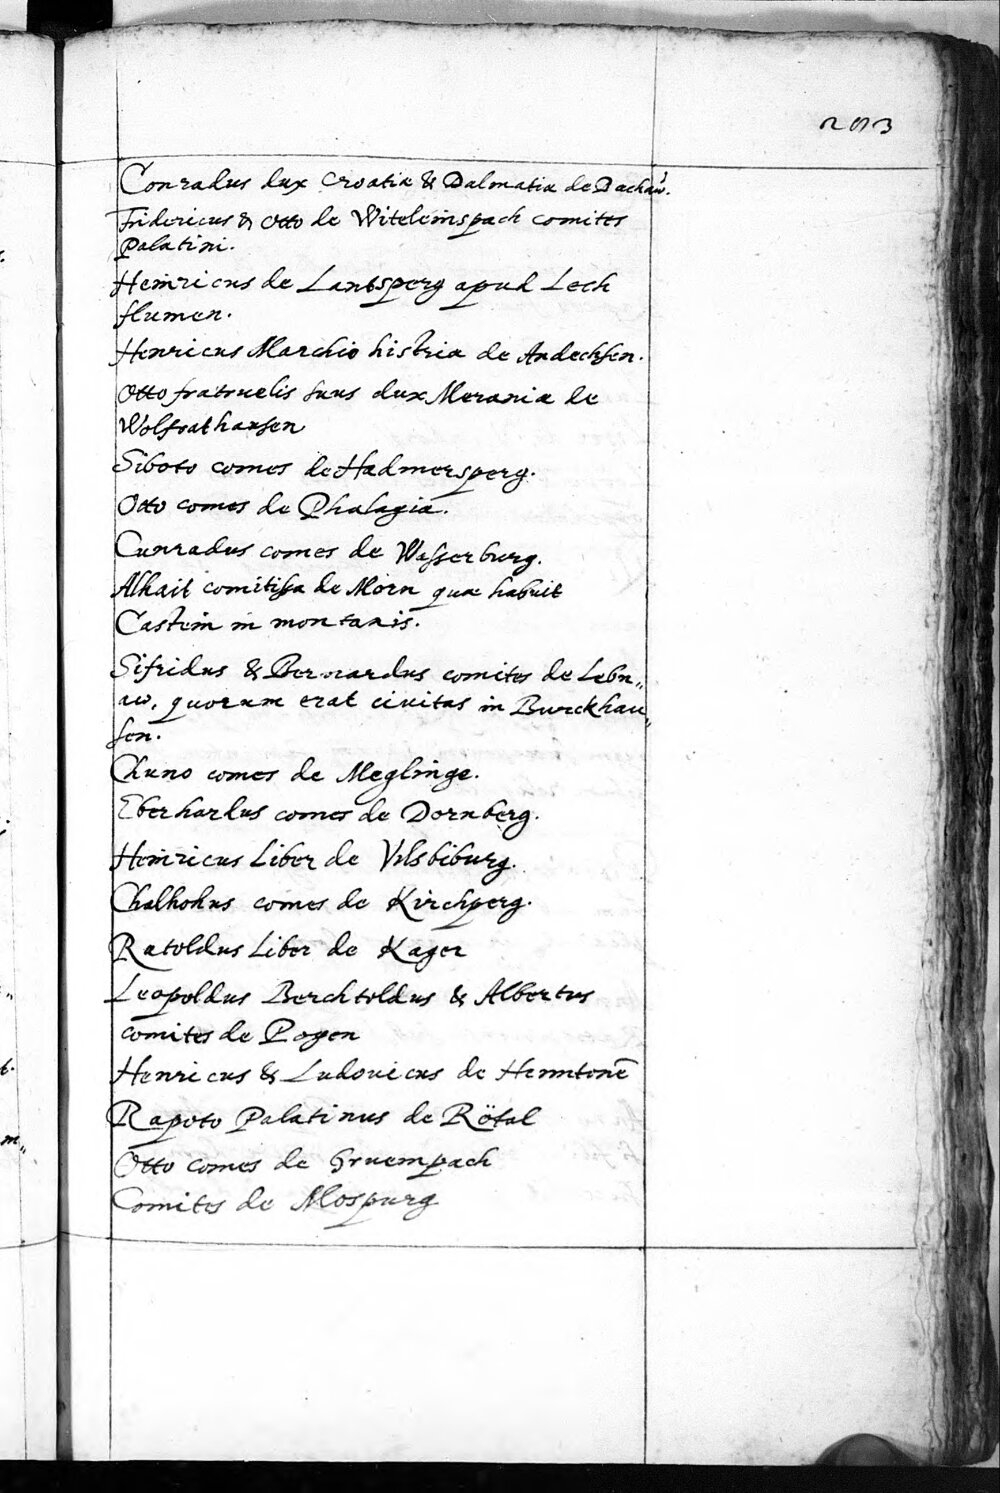 203
Conradus dux Croatiæ & Dalmatiæ de Dachaw.
Fridericus & Otto de Witeleinspach comites
Palatini.
Heinricus de Lantsperg apud Lech
flumen.
Henricus Marchio histriæ de Andechsen.
Otto fratruelis suus dux Meraniæ de
Wolfrathausen
Siboto comes de Hadmersperg.
Otto comes de Phalagia.
Cunradus comes de Wasserburg.
Alhait comitissa de Morn quæ habuit
Castein in montanis.
Sifridus & Bernardus comites de Lebn„
aw, quorum erat civitas in Burckhau„
sen.
Chuno comes de Meglinge.
Eberhardus comes de Dornberg.
Heinricus Liber de Vilsbiburg.
Chalhohus comes de Kirchperg.
Ratoldus Liber de Kager
Leopoldus Berchtoldus & Albertus
comites de Pogen
Henricus & Ludovicus de
Rapoto Palatinus de Rötal
Otto comes de Gruempach
Comites de Mospurg